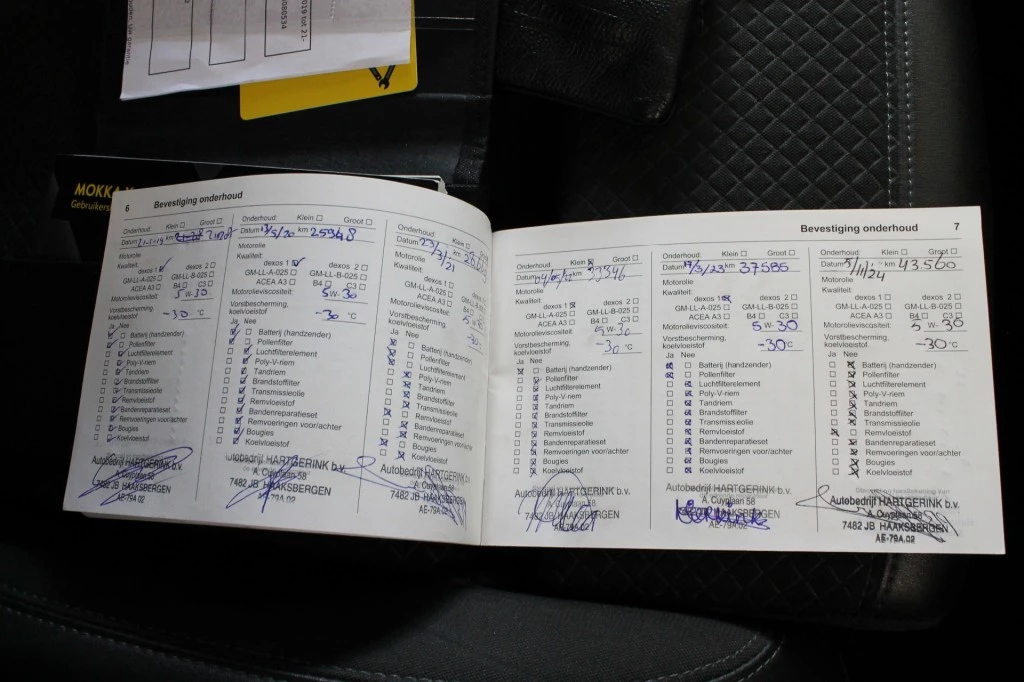 2019 tot 21-
0080534
MOKKA X
Gebruikers
6 Bevestiging onderhoud
Onderhoud: Klein ☐ Groot ☐
Datum km
Motorolie
Kwaliteit:
dexos 1 dexos 2 ☐
GM-LL-A-025 ☐ GM-LL-B-025 ☐
ACEA A3 ☐ B4 ☐ C3 ☐
Motorolieviscositeit: 5 W-30
Vorstbescherming,
koelvloeistof -30 °C
Ja Nee
Batterij (handzender)
Pollenfilter
Luchtfilterelement
Poly-V-riem
Tandriem
Brandstoffilter
Transmissieolie
Remvloeistof
Bandenreparatieset
Remvoeringen voor/achter
Bougies
Koelvloeistof
Autobedrijf HARTGERINK b.v.
A. Cuyplaan 58
7482 JB HAAKSBERGEN
AE-79A.02
Onderhoud: Klein ☐ Groot ☐
Datum /5/20 km 25948
Motorolie
Kwaliteit:
dexos 1 dexos 2 ☐
GM-LL-A-025 ☐ GM-LL-B-025 ☐
ACEA A3 ☐ B4 ☐ C3 ☐
Motorolieviscositeit: 5 W-30
Vorstbescherming,
koelvloeistof -30 °C
Ja Nee
Batterij (handzender)
Pollenfilter
Luchtfilterelement
Poly-V-riem
Tandriem
Brandstoffilter
Transmissieolie
Remvloeistof
Bandenreparatieset
Remvoeringen voor/achter
Bougies
Koelvloeistof
Autobedrijf HARTGERINK b.v.
A. Cuyplaan 58
7482 JB HAAKSBERGEN
AE-79A.02
Onderhoud: Klein ☐ Groot ☐
Datum 23/3/21 km
Motorolie
Kwaliteit:
dexos 1
GM-LL-A-025 ☐
ACEA A3 ☐
Motorolieviscositeit:
Vorstbescherming,
koelvloeistof -30
Ja Nee
Batterij (handzender)
Pollenfilter
Luchtfilterelement
Poly-V-riem
Tandriem
Brandstoffilter
Transmissieolie
Remvloeistof
Bandenreparatieset
Remvoeringen voor/achter
Bougies
Koelvloeistof
Autobedrijf HARTGERINK
A. Cuyplaan 58
7482 JB HAAKSBERGEN
AE-79A.02
Bevestiging onderhoud 7
Onderhoud: Klein ☒ Groot ☐
Datum km 33346
Motorolie
Kwaliteit:
dexos 1 ☒ dexos 2 ☐
GM-LL-A-025 ☐ GM-LL-B-025 ☐
ACEA A3 ☐ B4 ☐ C3 ☐
Motorolieviscositeit: 5 W-30
Vorstbescherming,
koelvloeistof -30 °C
Ja Nee
Batterij (handzender)
Pollenfilter
Luchtfilterelement
Poly-V-riem
Tandriem
Brandstoffilter
Transmissieolie
Remvloeistof
Bandenreparatieset
Remvoeringen voor/achter
Bougies
Koelvloeistof
Autobedrijf HARTGERINK b.v.
A. Cuyplaan 58
7482 JB HAAKSBERGEN
AE-79A.02
Onderhoud: Klein ☐ Groot ☐
Datum /3/23 km 37586
Motorolie
Kwaliteit:
dexos 1 ☒ dexos 2 ☐
GM-LL-A-025 ☐ GM-LL-B-025 ☐
ACEA A3 ☐ B4 ☐ C3 ☐
Motorolieviscositeit: 5 W-30
Vorstbescherming,
koelvloeistof -30 °C
Ja Nee
Batterij (handzender)
Pollenfilter
Luchtfilterelement
Poly-V-riem
Tandriem
Brandstoffilter
Transmissieolie
Remvloeistof
Bandenreparatieset
Remvoeringen voor/achter
Bougies
Koelvloeistof
Autobedrijf HARTGERINK b.v.
A. Cuyplaan 58
7482 JB HAAKSBERGEN
AE-79A.02
Onderhoud: Klein ☐ Groot
Datum 5/11/24 km 43.560
Motorolie
Kwaliteit:
dexos 1 ☐ dexos 2 ☐
GM-LL-A-025 ☐ GM-LL-B-025 ☐
ACEA A3 ☐ B4 ☐ C3 ☐
Motorolieviscositeit: 5 W-30
Vorstbescherming,
koelvloeistof -30 °C
Ja Nee
Batterij (handzender)
Pollenfilter
Luchtfilterelement
Poly-V-riem
Tandriem
Brandstoffilter
Transmissieolie
Remvloeistof
Bandenreparatieset
Remvoeringen voor/achter
Bougies
Koelvloeistof
Autobedrijf HARTGERINK b.v.
A. Cuyplaan 58
7482 JB HAAKSBERGEN
AE-79A.02